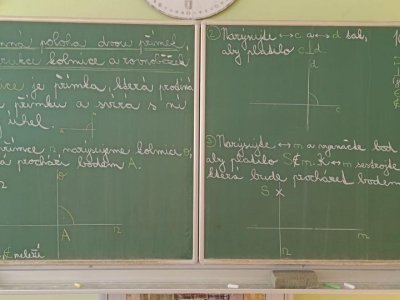 ná poloha dvou přímek,
rukce kolmice a rovnoběžek
ice je přímka, která protíná
přímku a svírá s ní
úhel.
přímce n narýsujeme kolmici
á prochází bodem A.
n
A
n
∉ neleží
② Narýsujte ↔ c a ↔ d tak,
aby platilo c⊥d.
d
c
③ Narýsujte ↔ m a vyznačte bod
aby platilo S∉m. K ↔ m sestrojte
která bude procházet bodem
S
m
n